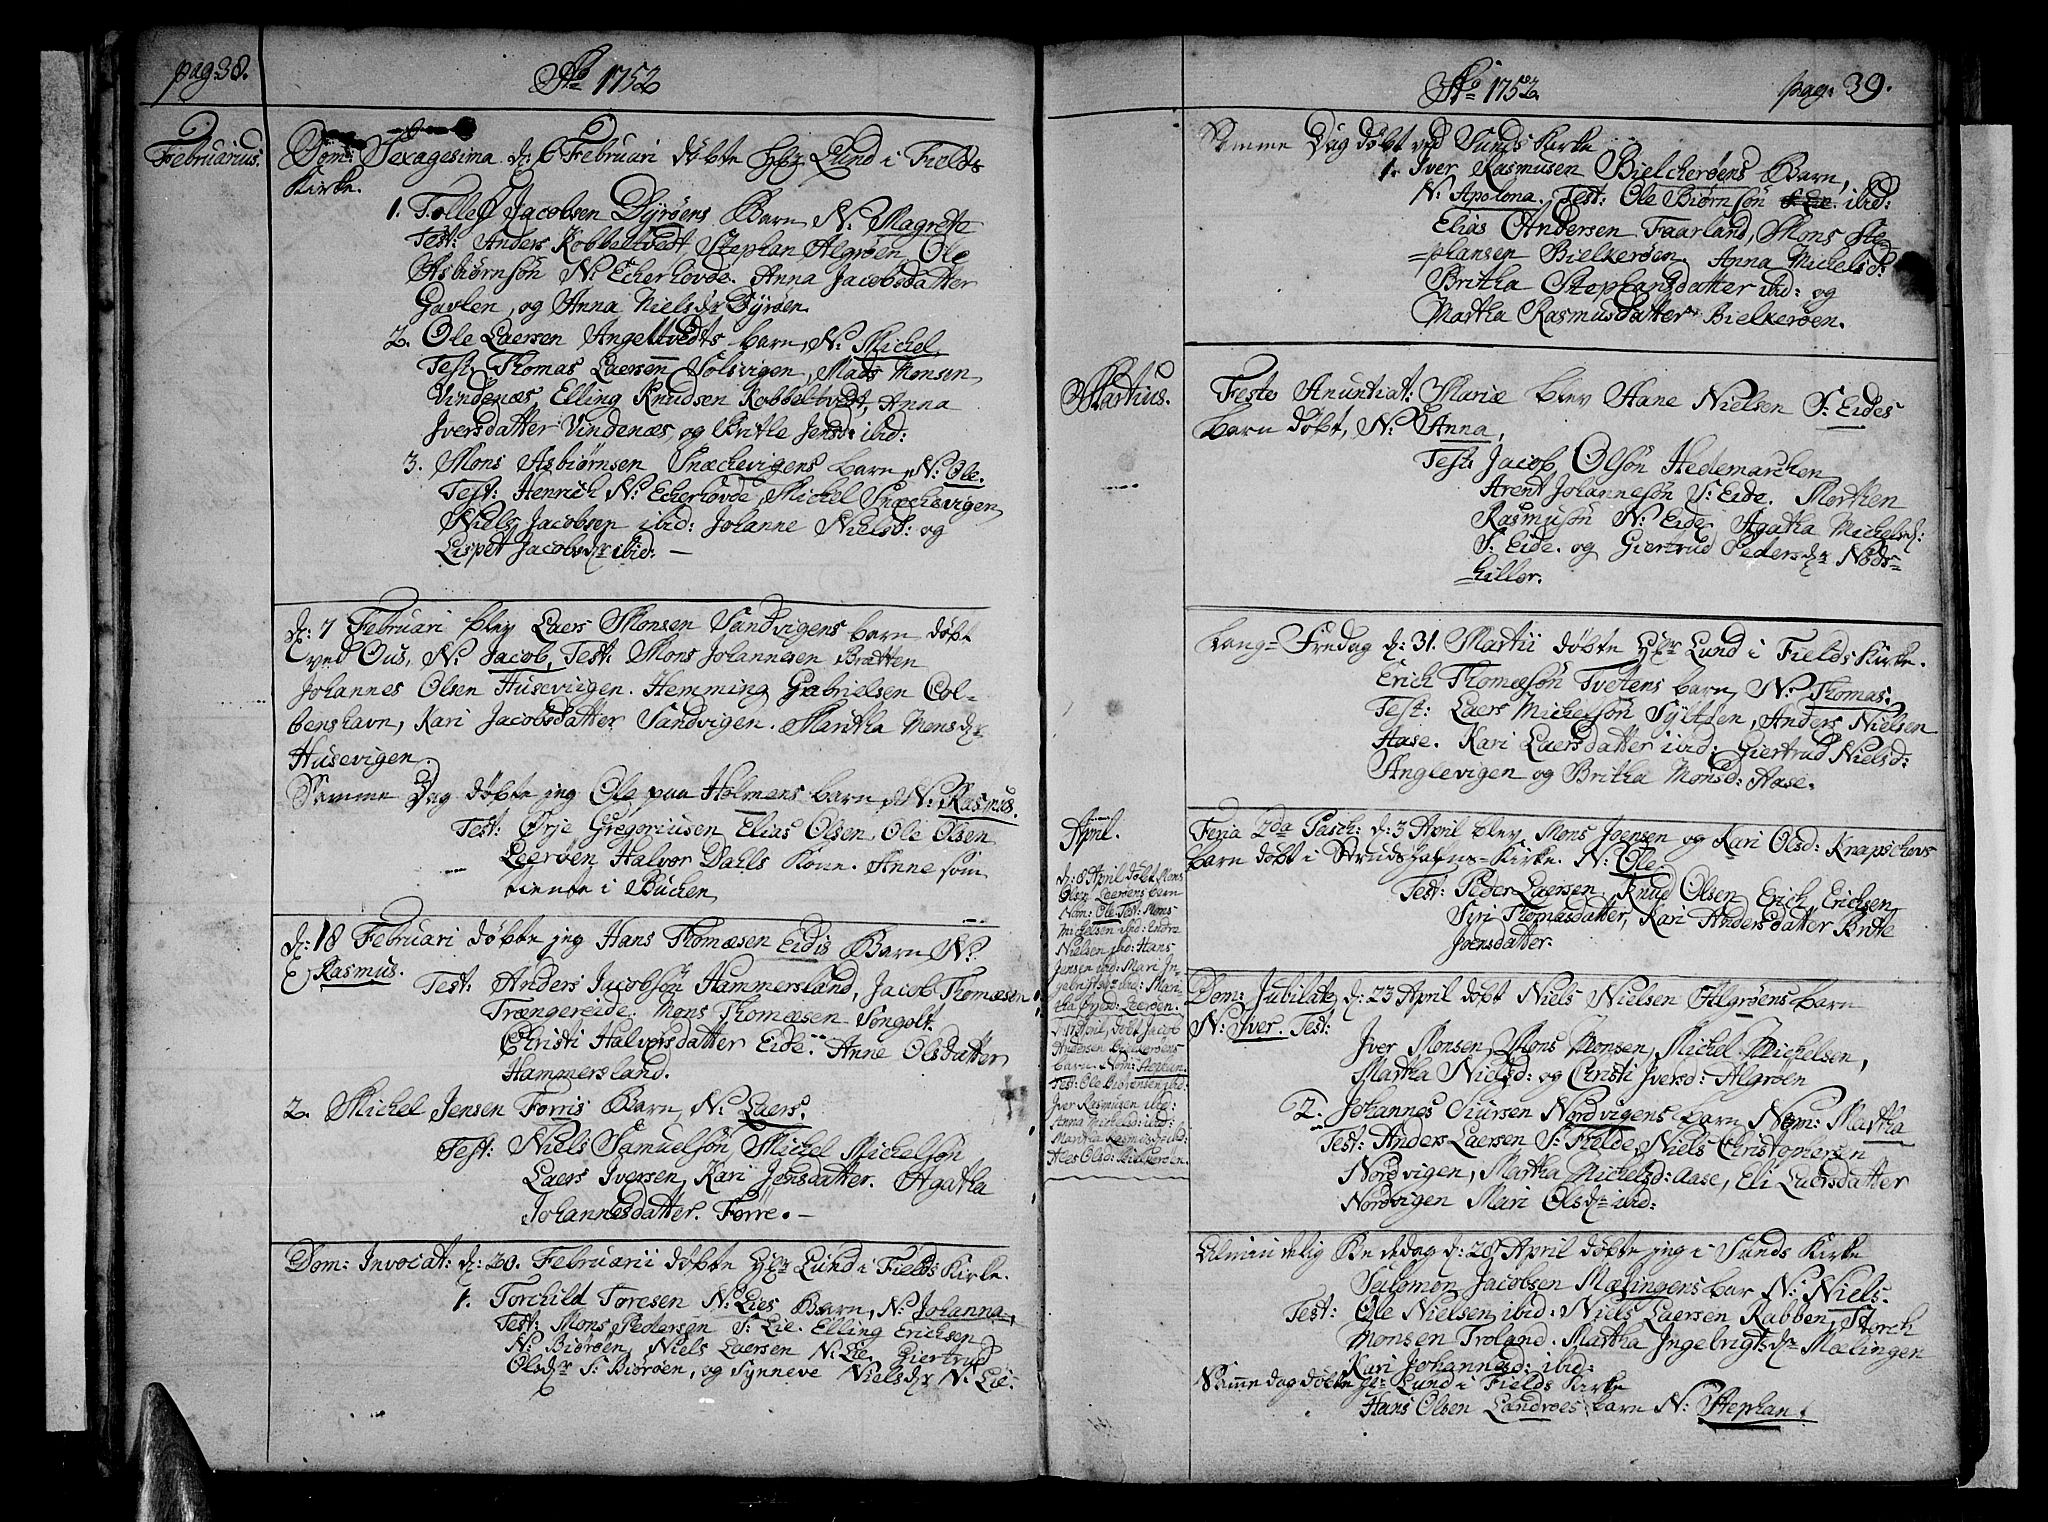 pag: 38.
Ao 1752
Februarius.
Dom: Sexagesima d: 6 Februari döbte Hr Lund i Fields
Kirke.
1. Tollef Jacobsen Dyröens Barn N: Magrete
Test: Anders Kobbeltvedt, Stephan Algröen, Ole
Asbiörnsön N: Echerhovde. Anna Jacobsdatter
Gavlen, og Anna Nielsdr Dyröen.
2. Ole Laersen Angeltvedts barn, N: Michel.
Test: Thomas Laersen Solsvigen, Mads Monsen
Vindenæs, Elling Knudsen Kobbeltvedt, Anna
Iversdatter Vindenæs, og Britle Jensd: ibid:
3. Mons Asbiörnsen Snæchevigens barn N: Ole.
Test: Henrich N: Echerhovde, Michel Snæchevigen
Niels Jacobsen ibid: Johanne Nielsd: og
Lispet Jacobsdr ibid: —
d: 7 Februari blev Laers Monsen Sandvigens barn döbt
ved Ous, N: Jacob, Test: Mons Johannesen Bratten
Johannes Olsen Husevigen. Hemming Gabrielsen Col-
benshavn, Kari Jacobsdatter Sandvigen. Martha Monsdr
Husevigen.
Samme Dag döbte jeg Ole paa Holmens barn, N: Rasmus.
Test: Örje Gregoriusen Elias Olsen, Ole Olsen
Leeröen Halvor Dahls Kone. Anne som
tiente i Buchen
d: 18 Februari döbte jeg Hans Thomæsen Eidis Barn N:
Rasmus.
Test: Anders Jacobsön Hammersland, Jacob Thomæsen
Trængereide. Mons Thomæsen Songolt.
Christi Halvorsdatter Eide. Anne Olsdatter
Hammersland.
2. Michel Jensen Forris Barn, N: Laers.
Test: Niels Samuelsön, Michel Michelsön
Laers Iversen, Kari Jensdatter. Agatha
Johannesdatter. Förre. —
Dom: Invocat: d: 20. Februarii döbte Hr Lund i Fields Kirke.
1. Torchild Toresen N: Lies Barn, N: Johanna,
Test: Mons Pedersen S: Lie. Elling Erichsen
N: Biöröen, Niels Laersen N: Lie, Giertrud
Olsdr S: Biöröen, og Synneve Nielsdr N: Lie.
Ao 1752.
pag: 39.
Samme Dag döbt ved Sunds Kirke
1. Iver Rasmusen Bielcheröens Barn,
N: Apolona. Test: Ole Biörnsön ibid:
Elias Andersen Faarland, Mons Ste
=phansen Bielkeröen. Anna Michelsd:
Britha Stephansdatter ibid: og
Martha Rasmusdatter Bielkeröen.
Martius.
Festo Anuntiat: Mariæ blev Hane Nielsen S: Eides
barn döbt, N: Anna,
Test: Jacob Olsön Hedemarchen
Arent Johannesön S: Eide. Morthen
Rasmusön N: Eide. Agatha Michelsd:
S: Eide. og Giertrud Pedersdr Nöds=
hiller.
Lang=Fredag d: 31. Martii döbte Hr Lund i Fields Kirke.
Erich Thomesön Tvetens barn, N: Thomas,
Test: Laers Michelsön Syltöen, Anders Nielsen
Aase. Kari Laersdatter ibid: Giertrud Nielsd:
Anglevigen og Britha Monsd: Aase.
April.
Feria 2da Pasch: d: 3 April blev Mons Joensen og Kari Olsd: Knapschevs
barn döbt i Strudshafns-Kirke. N: Ole
Test: Peder Laersen, Knud Olsen, Erich Erichsen
Siri Thomasdatter, Kari Andersdatter Britle
Joensdatter.
d: 8 April döbt Mons
Olsen Laeröens barn
Nom: Ole Test: Mons
Michelsen ibid: Endre
Nielsen ibid: Hans
Jensen ibid: Mari In-
gebrigtsdr ibid: Mar-
tha Leeröen.
d: 17 April, döbt Jacob
Andersen Bielkeröens
barn. Nom: Stephan.
Test: Ole Biörensen ibid:
Iver Rasmusen ibid:
Anna Michelsd: ibid:
Martha Rasmusdr ibid:
Ales Olsd: Bielkeröen.
Dom: Jubilate d: 23 April döbt Niels Nielsen Algröens barn
N: Iver. Test:
Iver Monsen, Mons Monsen, Michel Michelsen,
Martha Nielsd: og Christi Iversd: Algröen
2. Johannes Siursen Nordvigens barn Nom: Martha
Test: Anders Laersen S: Skelde, Niels Christophersen
Nordvigen, Martha Michelsd: Aase, Eli Laersdatter
Nordvigen Mari Olsdr ibid:
Almindelig Bededag d: 28 April döbte jeg i Sunds Kirke
Salomon Jacobsen Mælingens bar N: Niels.
Test: Ole Nielsen ibid: Niels Laersen Rabben, Storch
Monsen Troland. Martha Ingebrigtsdr Mælingen
Kari Johannesd: ibid:
Samme dag döbte Hr Lund i Fields Kirke
Hans Olsen Landroes barn N: Stephan.